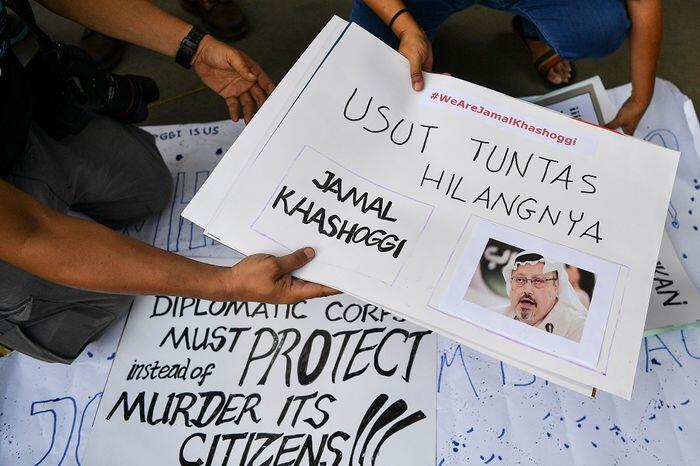 PGBI IS US
#WeAreJamalKhashoggi
USUT TUNTAS
HILANGNYA
JAMAL
KHASHOGGI
DIPLOMATIC CORPS
MUST PROTECT
instead of
MURDER ITS
CITIZENS!!!